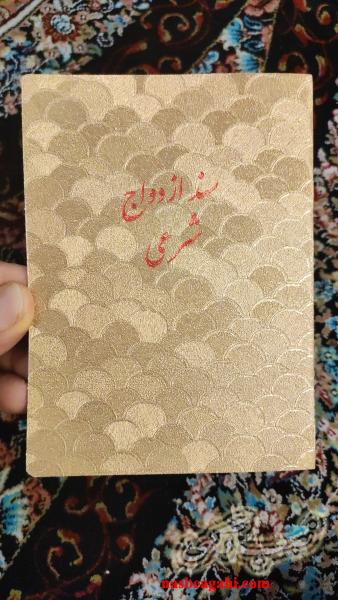 سند ازدواج
شرعی
nashcagahi.com